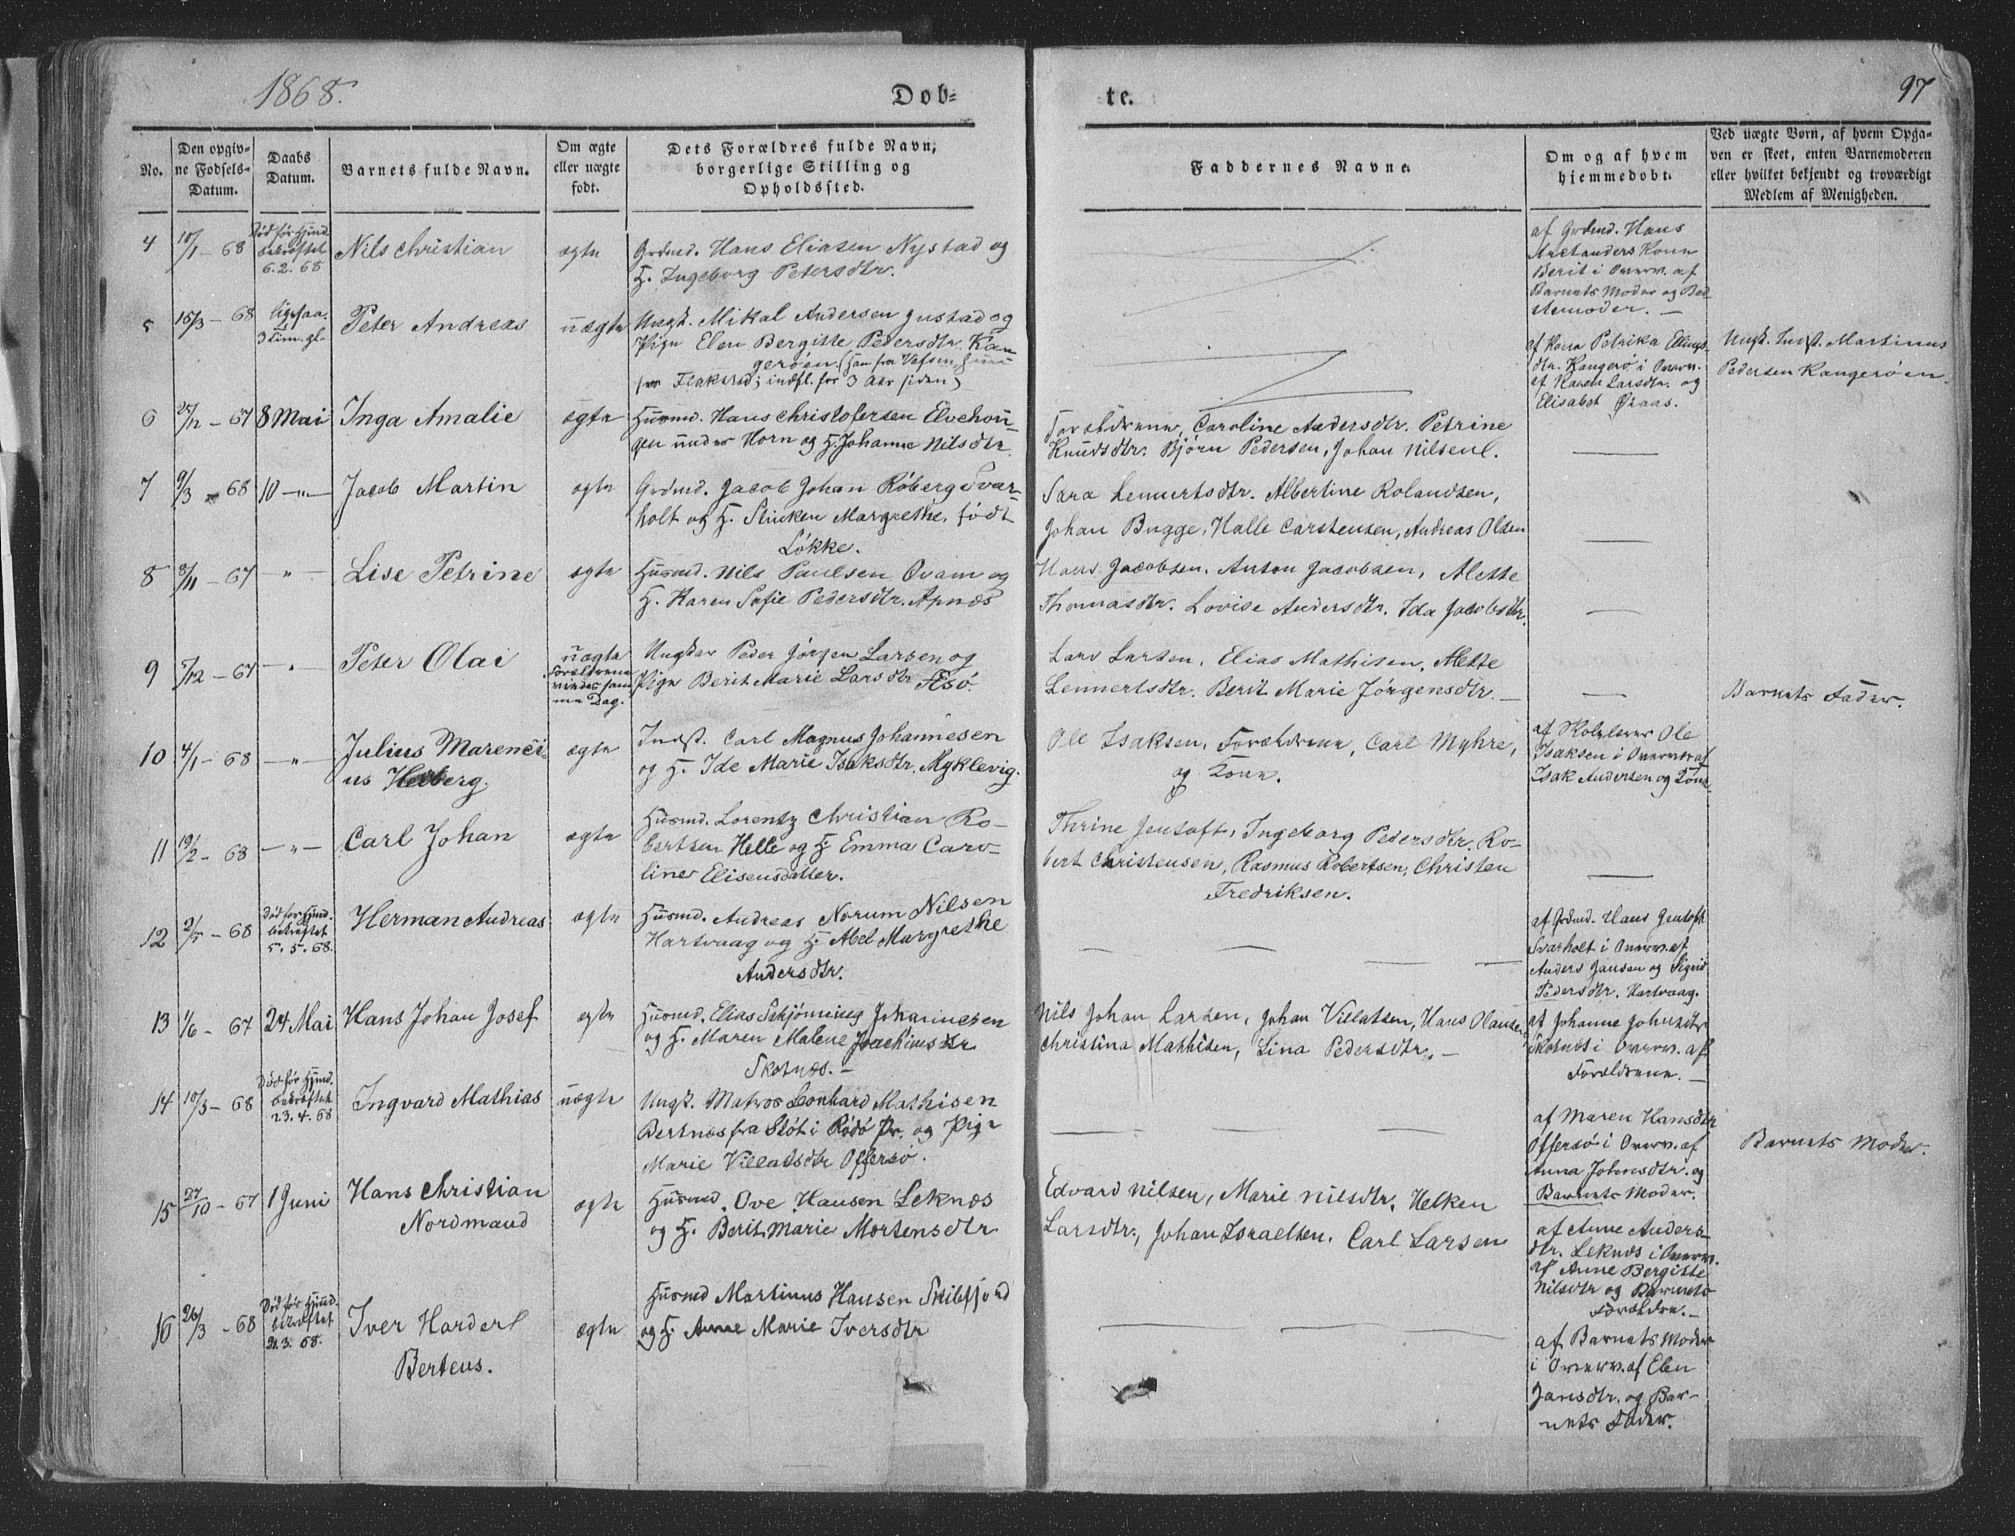 1868.
Döb-
te.
97
No.
Den opgiv-
ne Födsels-
Datum.
Daabs
Datum.
Barnets fulde Navn.
Om ægte
eller uægte
født.
Dets Forældres fulde Navn,
borgerlige Stilling og
Opholdssted.
Faddernes Navne.
Om og af hvem
hjemmedöbt.
Ved uægte Börn, af hvem Opga-
ven er skeet, enten Barnemoderen
eller hvilket bekjendt og troværdigt
Medlem af Menigheden.
4
10/1 - 68
Död för Hjmd.
bekræftet
6. 2. 68
Nils Christian
ægte
Grdmd. Hans Eliasen Nystad og
H. Ingeborg Petersdtr.
af Grdmd. Hans
Kone
Berit i Overv. af
Barnets Moder og Bed-
stemoder. —
5
18/3 - 68
ligesaa
Peter Andreas
uægte
Ungk. Mikal Andersen Gustad og
Pige Elen Bergitte Pedersdtr. Kan
gerøen (Han fra Vefsen, hun
fra Flaksted; indfl. for 3 Aar siden)
af Kone Petrika Ellings-
dtr. Kangerø i Overv.
af Karen Larsdtr. og
Elisabet Øraas.
Ungk. Indst. Martinus
Pedersen Kangerøen.
6
27/12 - 67
8 Mai
Inga Amalie
ægte
Husmd. Hans Christofersen Elvehou-
gen under Horn og H. Johanna Nilsdtr.
Forældrene, Caroline Andersdtr. Petrine
Knudsdtr. Bjørn Pedersen, Johan Nilsen.
7
9/3 - 68
10 —"—
Jacob Martin
ægte
Grdmd. Jacob Johan Röberg Svar-
holt og H. Stinken Margrethe, født
Løkke.
Sara Lennertsdtr. Albertine Rolandsen,
Johan Bugge, Halle Carstensen, Andreas Olsen
8
8/11 - 67
— " —
Lise Petrine
ægte
Husmd. Nils Paulsen Qvam og
H. Karen Sofie Pedersdtr. Apnæs
Hans Jacobsen, Anton Jacobsen, Alette
Thomasdtr. Lovise Andersdtr. Ida Jacobsdtr.
9
7/12 - 67
— " —
Peter Olai
uægte
Forældrene
viedes sam-
me Dag.
Ungkar Peder Jörgen Larsen og
Pige Berit Marie Larsdtr Æsö.
Lars Larsen, Elias Mathisen, Alette
Lennertsdtr. Berit Marie Jörgensdtr. —
Barnets Fader.
10
4/1 - 68
— " —
Julius Marenci-
us Heiberg.
ægte
Indst. Carl Magnus Johannesen
og H. Ide Marie Isaksdtr. Myklevig.
Ole Isaksen, Forældrene, Carl Myhre,
og Kone.
af Skolelærer Ole
Isaksen i Overværelse af
Isak Andersen og Kone
11
19/2 - 68
— " —
Carl Johan
ægte
Husmd. Lorentz Christian Ro-
bertsen Helle og H. Emma Caro-
line Elisensdatter.
Thrine Jentoft, Ingeborg Pedersdtr. Ro-
bert Christensen, Rasmus Robertsen, Christen
Fredriksen.
12
2/5 - 68
Död for Hjmd.
betræftet
5. 5. 68.
Herman Andreas
ægte
Husmd. Andreas Norum Nilsen
Hartvaag og H. Abel Margrethe
Andersdtr.
af Grdmd. Hans Jentoft
Svarholt i Overv. af
Anders Jansen og Sigrid
Pedersdtr. Hartvaag.
13
1/6 - 67
24 Mai
Hans Johan Josef
ægte
Husmd. Elias Schjönning Johannesen
og H. Maren Malene Joachimsdtr
Skotnæs. —
Nils Johan Larsen, Johan Villatsen, Hans Olausen
Christina Mathisen, Lina Pedersdtr. —
af Johanne Johnsdtr.
Skotnæs i Overv. af
Forældrene. —
14
10/3 - 68
Död för Hjmd.
bekræftet
23. 4. 68
Ingvard Mathias
uægte
Ungk. Matros Leonhard Mathisen
Bertnæs fra Støt i Rödö Pr. og Pige
Marie Villatsdtr Offersö.
af Maren Hansdtr
Offersö i Overv. af
Anna Johnsdtr. og
Barnets Moder.
Barnets Moder.
15
27/10 - 67
1 Juni
Hans Christian
Nordmand
ægte
Husmd. Ove Hansen Leknæs
og H. Berit Marie Mortensdtr
Edvard Nilsen, Marie Nilsdtr. Helken
Larsdtr., Johan Israelsen, Carl Larsen
af Anne Anders-
dtr. Leknæs i Overv.
af Anne Bergitte
Nilsdtr og Barnets
Forældre. —
16
26/3 - 68
Död för Hjmd.
betræftet
Iver Harder
Berteus.
ægte
Husmd Martinus Hansen Skielfjord
og H. Anne Marie Iversdtr
af Barnets Moder
i Overv. af Elen
Jansdtr. og Bar-
nets Fader.